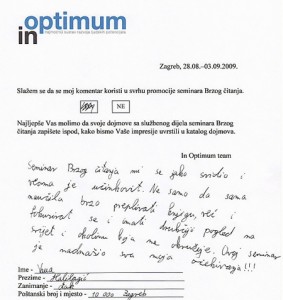 optimum
in
Zagreb, 28.08.-03.09.2009.
Slažem se da se moj komentar koristi u svrhu promocije seminara Brzog čitanja.
NE
Najljepše Vas molimo da svoje dojmove sa službenog dijela seminara Brzog
čitanja zapišete ispod, kako bismo Vaše impresije uvrstili u katalog dojmova.
In Optimum team
Seminar Brzog čitanja mi se jako svidio i
veoma je učinkovit. Ne samo da sam
naučila brzo prelistati knjigu, već i
fokusirat se i imati drukčiji pogled na
svijet i okolinu koja me okružuje. Ovaj seminar
je nadmašio sva moja očekivanja!!!
Ime -
Prezime - Halilagić
Zanimanje - đak
Poštanski broj i mjesto - 10 000 Zagreb